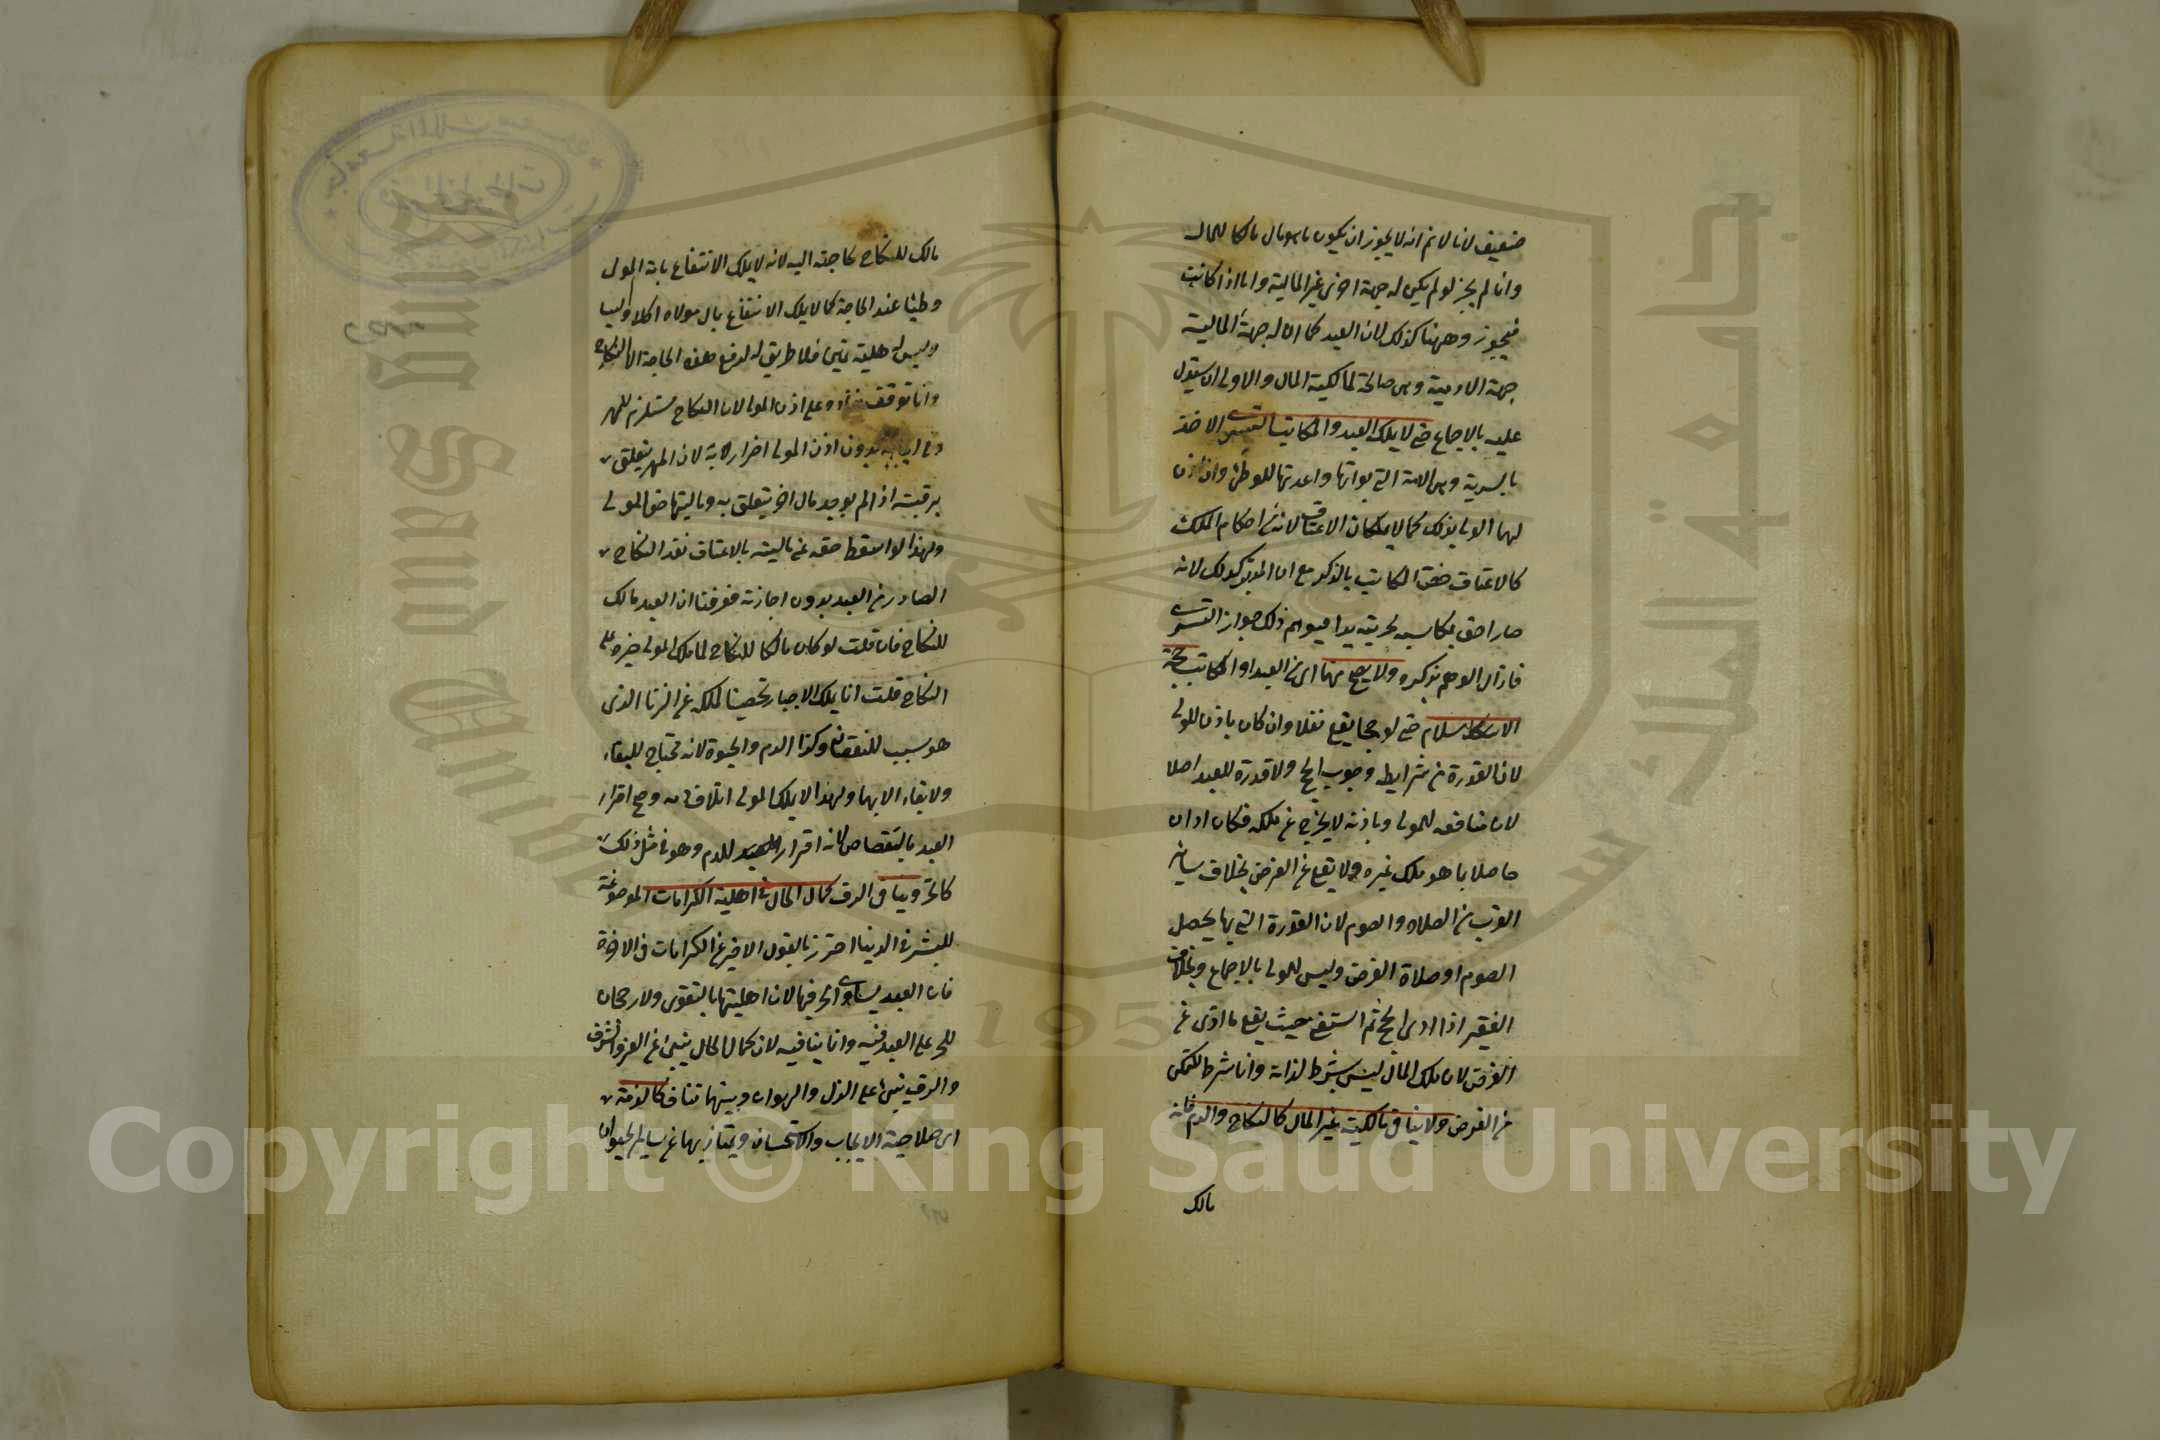 ضعيف لانا لا نم انه لا يجوز ان يكون ما هو مال مالكا للمال
وانما لم يجز لو لم يكن له جهة اخرى غير المالية واما اذا كانت
فيجوز وههنا كذلك لان العبد كما ان له جهة المالية
جهة الادمية وهى صالحة لمالكية المال والاولى ان يستدل
عليه بالاجماع حتى لا يملك العبد والمكاتب التسرى الاخذ
بالسرية وهى الامة التى بوأتها واعدتها للوطئ وان اذن
لهما المولى بذلك كما لا يملكان الاعتاق لانه من احكام الملك
كالاعتاق خص المكاتب بالذكر مع ان المدبر كذلك لانه
صار احق بمكاسبه لحريته يدا فيوهم ذلك جواز التسرى
فازال الوهم بذكره ولا يصح منهما اى من العبد او المكاتب حجة
الاسلام حتى لو حجا يقع نفلا وان كان باذن المولى
لان القدرة من شرايط وجوب الحج ولا قدرة للعبد اصلا
لان منافعه للمولى وباذنه لا يخرج عن ملكه فكان اداؤه
حاصلا بما هو ملك غيره ولا يقع عن الفرض بخلاف ساير
القرب من الصلاه والصوم لان القدرة التى بها يحصل
الصوم او صلاة الفرض وليس للمولى بالاجماع وبخلاف
الفقير اذا ادى الحج ثم استغنى حيث يقع ما ادى عن
الفرض لان ملك المال ليس بشرط لذاته وانما شرط للتمكن
من الفرض ولا ينافى مالكية غير المال كالنكاح والدم فانه
مالك
مالك للنكاح لحاجته اليه لانه لا يملك الانتفاع بامة المولى
وطئا عند الحاجة كما لا يملك الانتفاع بمال مولاه اكلا ولبسا
وليس له اهلية ملك يمين فلا طريق له لدفع هذه الحاجة الا النكاح
وانما توقف نفاذه على اذن المولى لان النكاح مستلزم للمهر
وفى ايجابه بدون اذن المولى اضرار لأنه لان المهر يتعلق
برقبته اذا لم يوجد مال اخر يتعلق به وماليتها حق المولى
ولهذا لو اسقط حقه عن ماليته بالاعتاق نفذ النكاح
الصادر من العبد بدون اجازته فعرفنا ان العبد مالك
للنكاح فان قلت لو كان مالكا للنكاح لما ملك المولى جبره على
النكاح قلت انما يملك الاجبار تحصينا لملكه عن الزنا الذى
هو سبب للنقصان وكذا الدم والحيوة لانه محتاج للبقاء
ولا بقاء الا بهما ولهذا لا يملك المولى اتلاف دمه وصح اقرار
العبد بالقصاص لانه اقرار بالدم وهو فى مثل ذلك
كالحر وينافى الرق كمال الحال فى اهلية الكرامات الموضوعة
للبشر فى الدنيا احترز بالقول الاخير عن الكرامات فى الاخرة
فان العبد يساوى الحر فيها لان اهليتها بالتقوى ولا رجحان
للحر على العبد فيه وانما ينافيه لان كمال الحال ينبئ عن العز والشرف
والرق ينبئ على الذل والهوان وبينهما تناف كالذمة
اى صلاحية الايجاب والاستحسان ويمتاز بها عن ساير الحيوان
Copyright © King Saud University
جامعة الملك سعود
King Saud University
1957